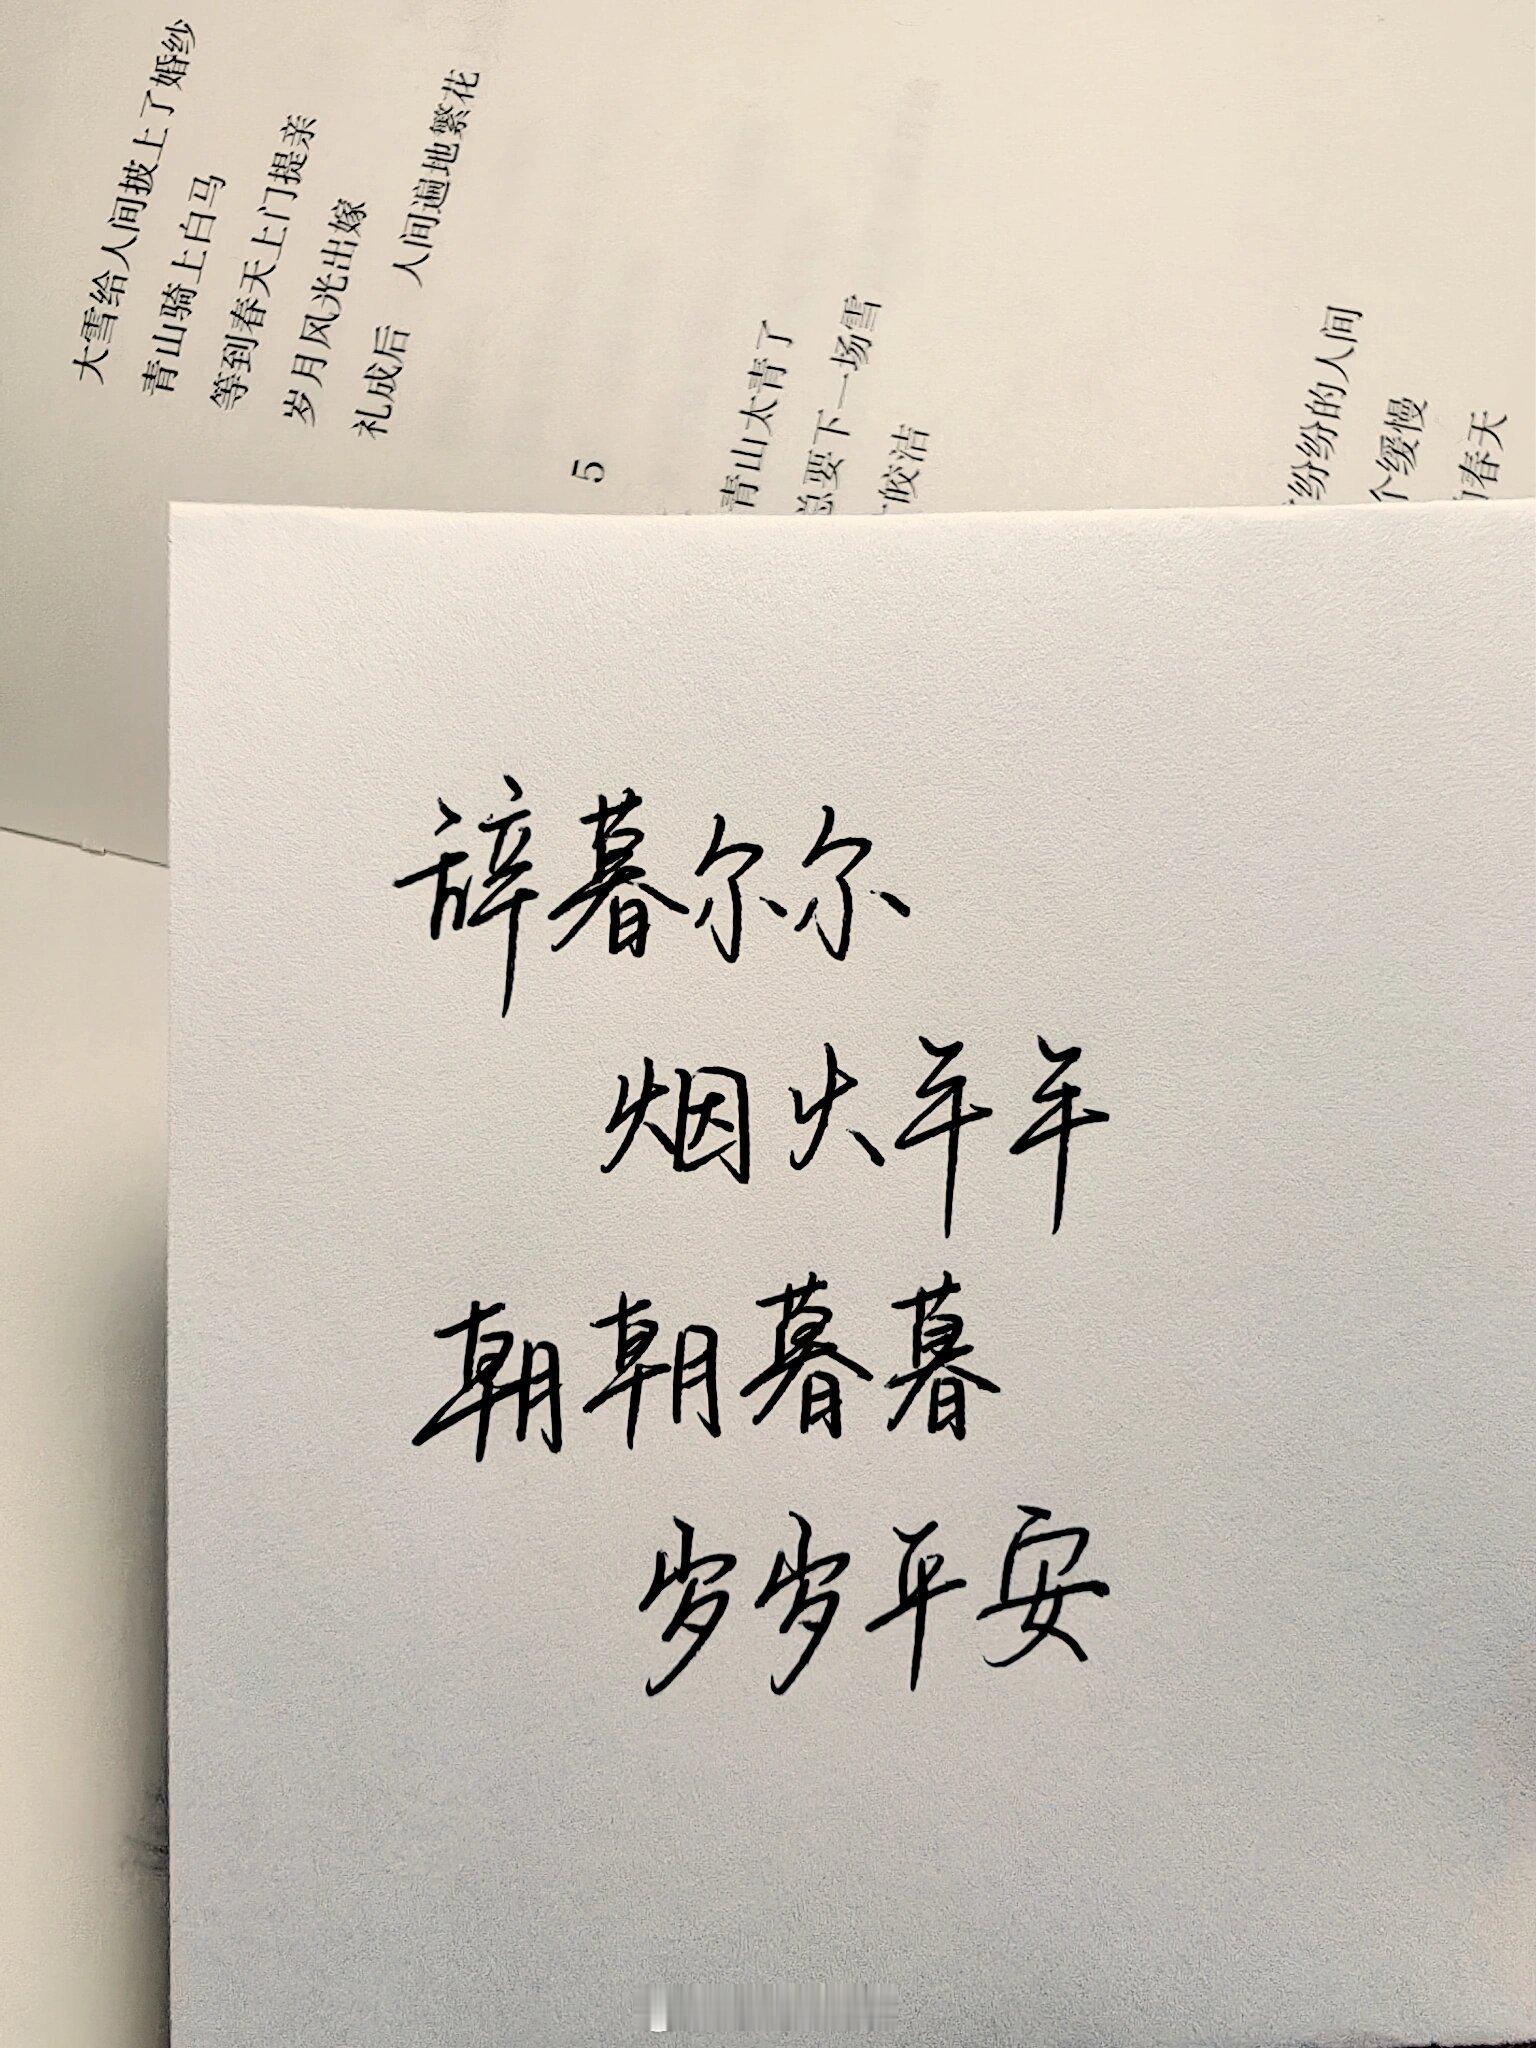 大雪给人间披上了婚纱
青山骑上白马
等到春天上门提亲
岁月风光出嫁
礼成后 人间遍地繁花
5
青山太青了
总要下一场雪
皎洁
纷纷的人间
个缓慢
春天
辞暮尔尔
烟火年年
朝朝暮暮
岁岁平安